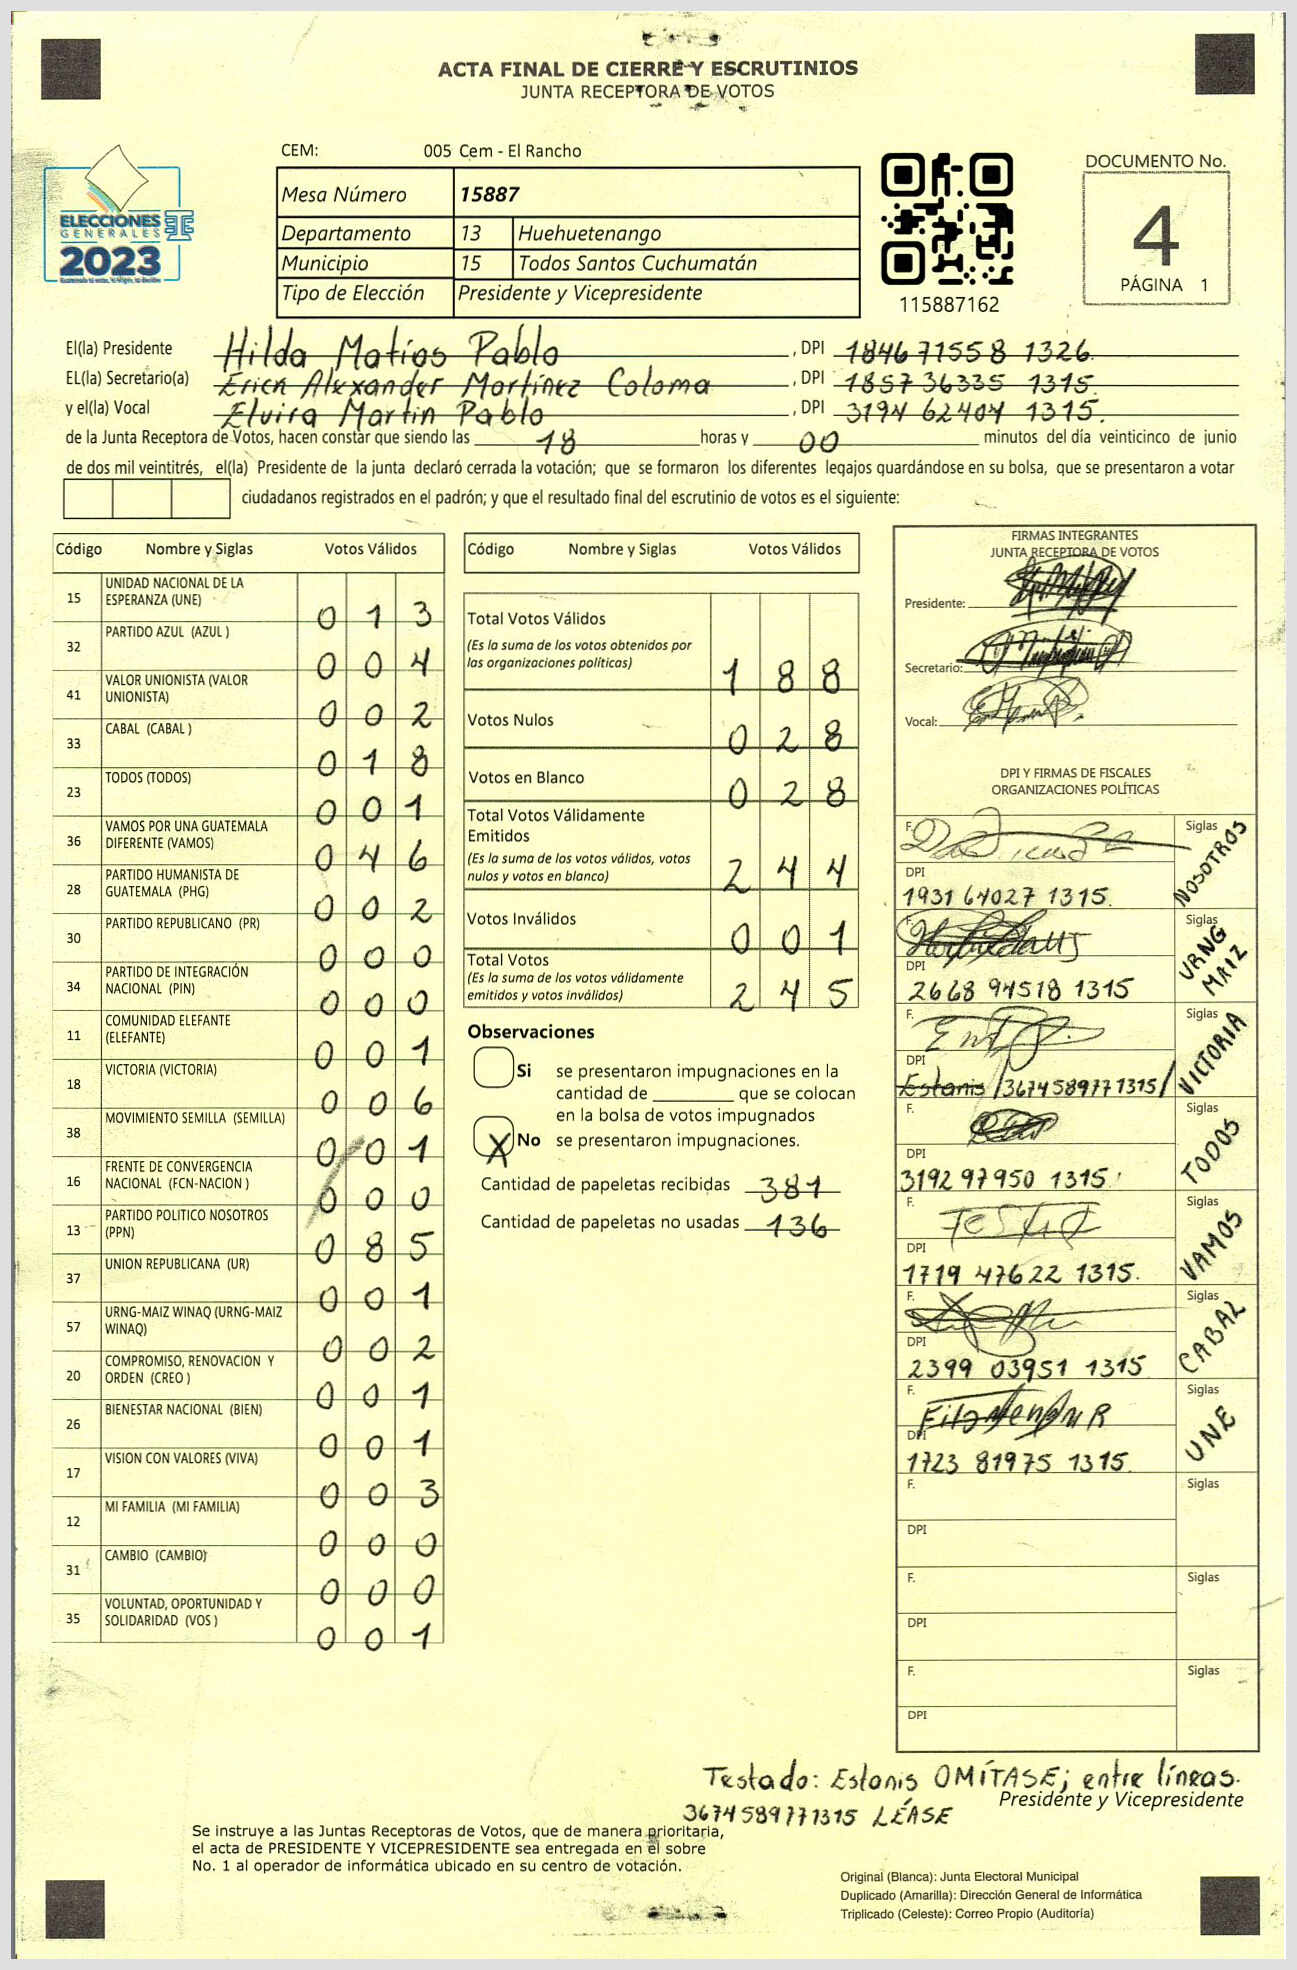 ACTA FINAL DE CIERRE Y ESCRUTINIOS
JUNTA RECEPTORA DE VOTOS
ELECCIONES
GENERALES
2023
CEM: 005 Cem - El Rancho
Mesa Número 15887
Departamento 13 Huehuetenango
Municipio 15 Todos Santos Cuchumatán
Tipo de Elección Presidente y Vicepresidente
115887162
DOCUMENTO No.
4
PÁGINA 1
El(la) Presidente Hilda Matías Pablo , DPI 1846 71558 1326.
EL(la) Secretario(a) Erick Alexander Martínez Coloma , DPI 1857 36335 1315.
y el(la) Vocal Elvira Martin Pablo , DPI 3194 62404 1315.
de la Junta Receptora de Votos, hacen constar que siendo las 18 horas y 00 minutos del día veinticinco de junio
de dos mil veintitrés, el(la) Presidente de la junta declaró cerrada la votación; que se formaron los diferentes legajos quardándose en su bolsa, que se presentaron a votar
ciudadanos registrados en el padrón; y que el resultado final del escrutinio de votos es el siguiente:
Código Nombre y Siglas Votos Válidos
15 UNIDAD NACIONAL DE LA ESPERANZA (UNE) 0 1 3
32 PARTIDO AZUL (AZUL ) 0 0 4
41 VALOR UNIONISTA (VALOR UNIONISTA) 0 0 2
33 CABAL (CABAL ) 0 1 8
23 TODOS (TODOS) 0 0 1
36 VAMOS POR UNA GUATEMALA DIFERENTE (VAMOS) 0 4 6
28 PARTIDO HUMANISTA DE GUATEMALA (PHG) 0 0 2
30 PARTIDO REPUBLICANO (PR) 0 0 0
34 PARTIDO DE INTEGRACIÓN NACIONAL (PIN) 0 0 0
11 COMUNIDAD ELEFANTE (ELEFANTE) 0 0 1
18 VICTORIA (VICTORIA) 0 0 6
38 MOVIMIENTO SEMILLA (SEMILLA) 0 0 1
16 FRENTE DE CONVERGENCIA NACIONAL (FCN-NACION ) 0 0 0
13 PARTIDO POLITICO NOSOTROS (PPN) 0 8 5
37 UNION REPUBLICANA (UR) 0 0 1
57 URNG-MAIZ WINAQ (URNG-MAIZ WINAQ) 0 0 2
20 COMPROMISO, RENOVACION Y ORDEN (CREO ) 0 0 1
26 BIENESTAR NACIONAL (BIEN) 0 0 1
17 VISION CON VALORES (VIVA) 0 0 3
12 MI FAMILIA (MI FAMILIA) 0 0 0
31 CAMBIO (CAMBIO) 0 0 0
35 VOLUNTAD, OPORTUNIDAD Y SOLIDARIDAD (VOS ) 0 0 1
Código Nombre y Siglas Votos Válidos
Total Votos Válidos
(Es la suma de los votos obtenidos por
las organizaciones políticas) 1 8 8
Votos Nulos 0 2 8
Votos en Blanco 0 2 8
Total Votos Válidamente
Emitidos
(Es la suma de los votos válidos, votos
nulos y votos en blanco) 2 4 4
Votos Inválidos 0 0 1
Total Votos
(Es la suma de los votos válidamente
emitidos y votos inválidos) 2 4 5
Observaciones
Si se presentaron impugnaciones en la
cantidad de ________ que se colocan
en la bolsa de votos impugnados
X No se presentaron impugnaciones.
Cantidad de papeletas recibidas 381
Cantidad de papeletas no usadas 136
FIRMAS INTEGRANTES
JUNTA RECEPTORA DE VOTOS
Presidente:
Secretario:
Vocal:
DPI Y FIRMAS DE FISCALES
ORGANIZACIONES POLÍTICAS
F. Siglas NOSOTROS
DPI
1931 64027 1315.
F. Siglas URNG MAIZ
DPI
2668 94518 1315
F. Siglas VICTORIA
DPI
Estanis /3674589771315/
F. Siglas TODOS
DPI
3192 97950 1315.
F. Siglas VAMOS
DPI
1719 47622 1315.
F. Siglas CABAL
DPI
2399 03951 1315
F. Siglas UNE
DPI
1723 81975 1315.
F. Siglas
DPI
F. Siglas
DPI
F. Siglas
DPI
Testado: Estanis OMÍTASE; entre líneas.
Presidente y Vicepresidente
3674589771315 LÉASE
Se instruye a las Juntas Receptoras de Votos, que de manera prioritaria,
el acta de PRESIDENTE Y VICEPRESIDENTE sea entregada en el sobre
No. 1 al operador de informática ubicado en su centro de votación.
Original (Blanca): Junta Electoral Municipal
Duplicado (Amarilla): Dirección General de Informática
Triplicado (Celeste): Correo Propio (Auditoría)